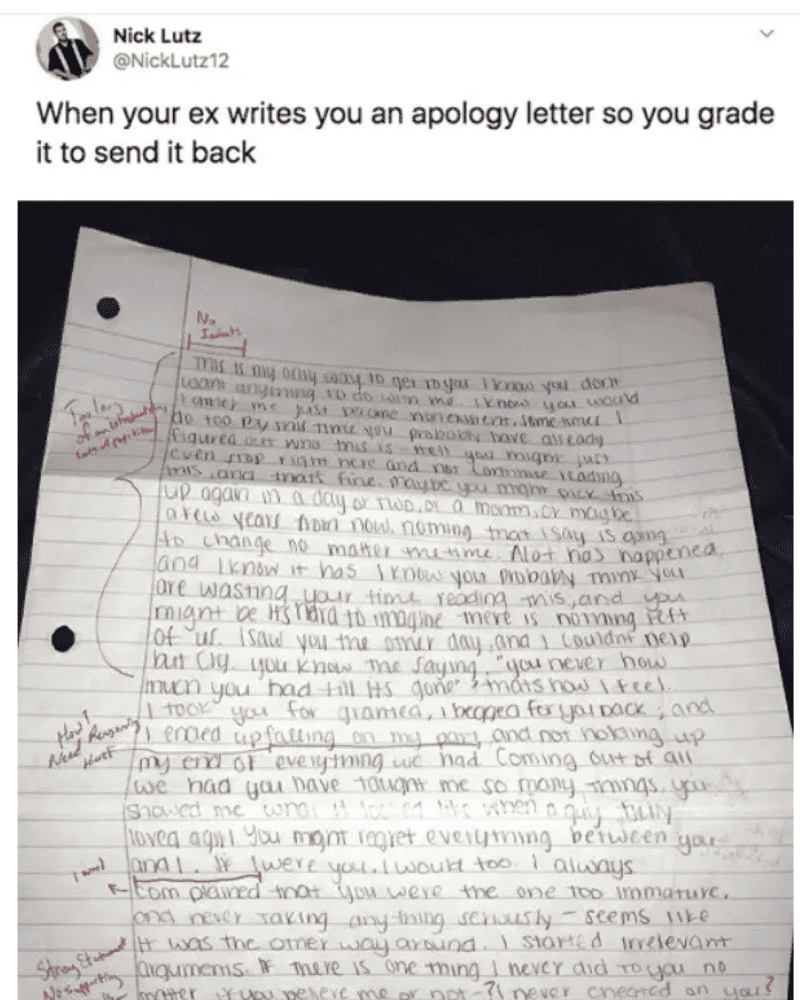 Nick Lutz
@NickLutz12
When your ex writes you an apology letter so you grade
it to send it back
No
Indents
This is my only way to get to you I know you dont
want anything to do with me. I know you would
rather me just become nonexistent, some times I
do too. By this time you probably have already
Too long
of an introduction,
figured out who this is well you might just
even stop right here and not continue reading
this, and that's fine. maybe you might pick this
up again in a day or two, or a month. or maybe
a few years from now. nothing that I say is going
to change no matter the time. Alot has happened,
and I know it has I know you probably think you
are wasting your time reading this, and you
might be its hard to imagine there is nothing left
of "us". I saw you the other day, and I couldnt help
but cry. you know the saying, "you never how
much you had till its gone" thats how I feel.
I took you for granted, I begged for you back, and
How?
Reasoning
Need
I ended up falling on my part, and not holding up
my end of everything we had Coming out of all
we had you have taught me so many things. you
showed me what it looked like when a guy truly
loved a girl you might regret everything between you
and I. If I were you. I would too. I always
1 word
complained that you were the one too immature.
and never taking anything seriously - seems like
it was the other way around. I started irrelevant
Strong Statement
arguments. If there is one thing I never did to you no
No supporting
matter if you beleve me or not - I never cheated on you?